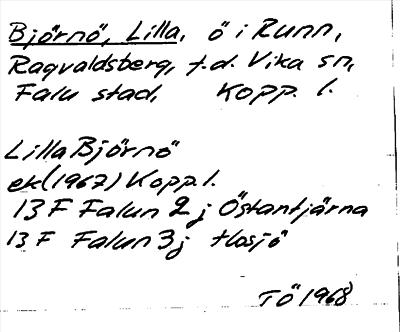 Björnö, Lilla, ö i Runn,
Ragvaldsberg, f.d. Vika sn,
Falu stad, Kopp. l.
Lilla Björnö
ek (1967) Kopp. l.
13 F Falun 2j Östantjärna
13 F Falun 3j Hosjö
TÖ 1968